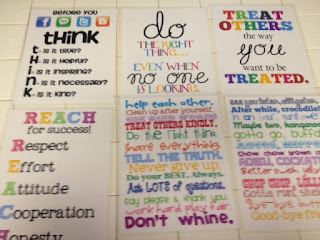 BEFORE YOU
thinK
t-is it true?
h-is it Helpful?
i-is it inspiring?
n-is it necessary?
k-is it kind?
do
THE RIGHT
THING...
EVEN WHEN
no one
IS LOOKING.
TREAT
OTHERS
the way
you
want to be
TREATED.
REACH
for success!
Respect
Effort
Attitude
Cooperation
Honesty
help each other.
Clean up after yourself.
TREAT OTHERS KINDLY.
Do the right thing.
share everything.
TELL THE TRUTH.
Never give up.
Do your BEST. Always.
Ask LOTS of questions.
say please & thank you.
work hard. play fair.
Don't whine.
see you later, alligator.
After while, crocodile
Maybe two, kangaroo
gotta go, bu
CHOP CHOP
Good-bye fri